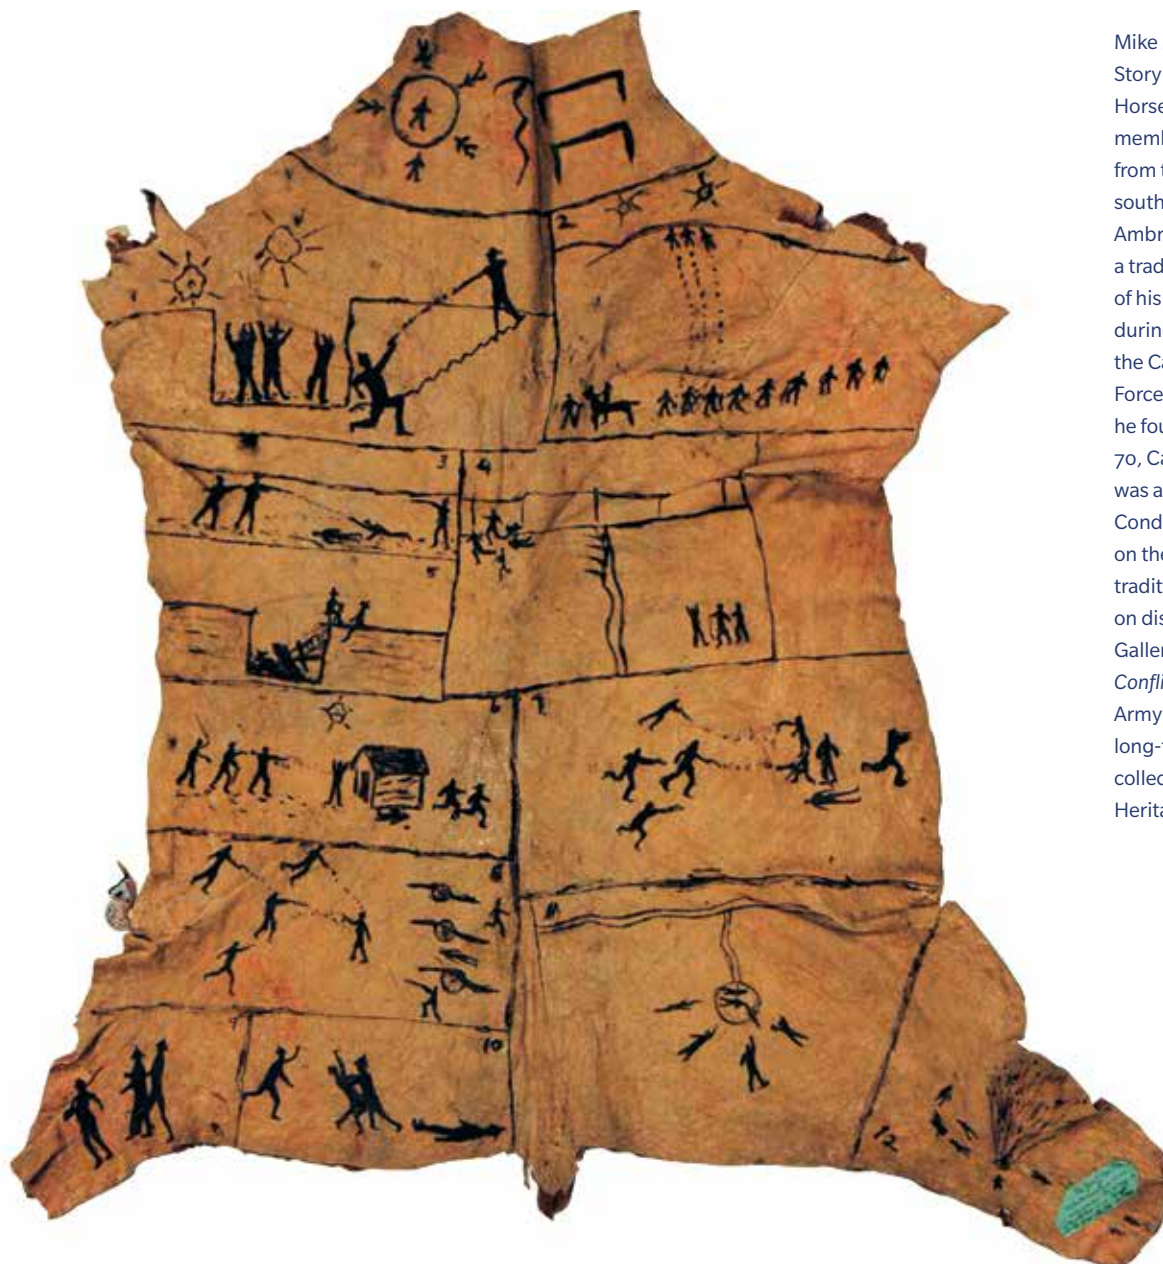 Mike
Story
Horse
memb
from t
south
Ambr
a trad
of his
durin
the Ca
Force
he fou
70, Ca
was a
Cond
on the
tradit
on dis
Galler
Confli
Army
long-
collec
Herita
2
3 4
5
6 7
8
11
9
10
12